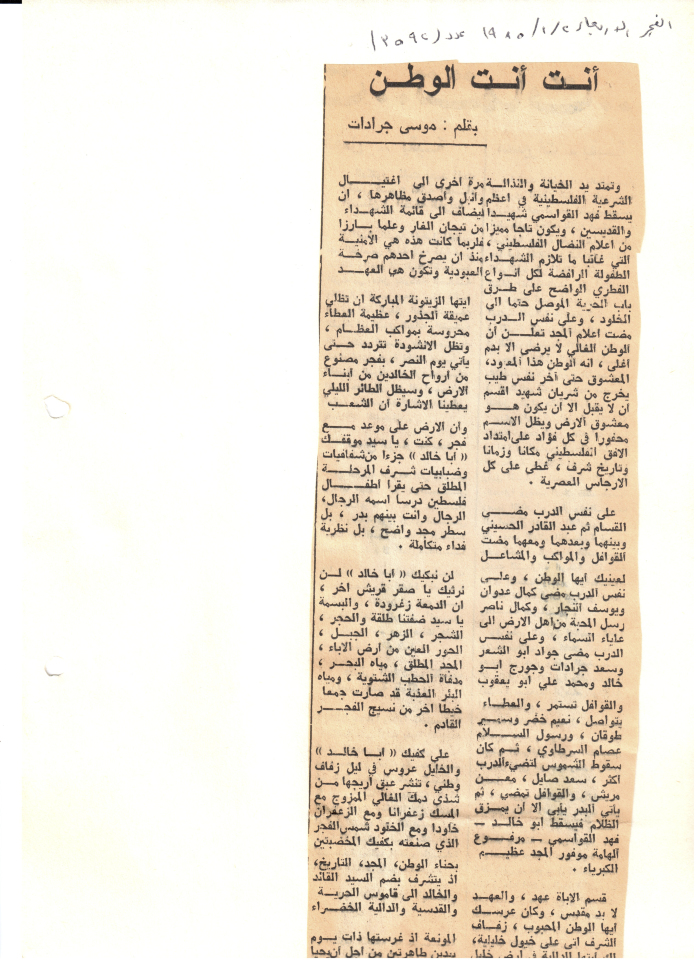 الفجر الاربعاء ١٩٨٥/١/٢ عدد (٣٥٩٢)
أنت أنت الوطن
بقلم : موسى جرادات
وتمتد يد الخيانة والنذالة مرة اخرى الى اغتيال
الشرعية الفلسطينية في اعظم وانبل وأصدق مظاهرها ، ان
يسقط فهد القواسمي شهيدا ليضاف الى قائمة الشهداء
والقديسين ، ويكون تاجا مميزا من تيجان الغار وعلما بارزا
من اعلام النضال الفلسطيني ، فلربما كانت هذه هي الأمنية
التي غالبا ما تلازم الشهداء منذ ان يصرخ احدهم صرخة
الطفولة الرافضة لكل انواع العبودية وتكون هي العهد
الفطري الواضح على طرق
باب الحرية الموصل حتما الى
الخلود ، وعلى نفس الدرب
مضت اعلام المجد تعلن ان
الوطن الغالي لا يرضى الا بدم
اغلى ، انه الوطن هذا المعبود،
المعشوق حتى آخر نفس طيب
يخرج من شريان شهيد اقسم
ان لا يقبل الا ان يكون هو
معشوق الارض ويظل الاسم
محفورا في كل فؤاد على امتداد
الافق الفلسطيني مكانا وزمانا
وتاريخ شرف ، غطى على كل
الارجاس العصرية .
على نفس الدرب مضى
القسام ثم عبد القادر الحسيني
وبينهما وبعدهما ومعهما مضت
القوافل والمواكب والمشاعل
لعينيك ايها الوطن ، وعلى
نفس الدرب مضى كمال عدوان
ويوسف النجار ، وكمال ناصر
رسل المحبة من اهل الارض الى
علياء السماء ، وعلى نفس
الدرب مضى جواد ابو الشعر
وسعد جرادات وجورج ابو
خالد ومحمد علي ابو يعقوب
والقوافل تستمر ، والعطاء
يتواصل ، نعيم خضر وسمير
طوقان ، ورسول السلام
عصام السرطاوي ، ثم كان
سقوط الشموس لتضيء الدرب
اكثر ، سعد صايل ، معن
مريش ، والقوافل تمضي ، ثم
يأتي البدر يأبى الا ان يمزق
الظلام فيسقط ابو خالد —
فهد القواسمي — مرفوع
الهامة موفور المجد عظيم
الكبرياء .
قسم الاباة عهد ، والعهد
لا بد مقدس ، وكان عرسك
ايها الوطن المحبوب ، زفاف
الشرف اتى على خيول خليلية،
ايتها الدالية في ارض خليل
ايتها الزيتونة المباركة ان تظلي
عميقة الجذور ، عظيمة العطاء
محروسة بمواكب العظام ،
وتظل الانشودة تتردد حتى
يأتي يوم النصر ، بفجر مصنوع
من ارواح الخالدين من ابناء
الارض ، وسيظل الطائر الليلي
يعطينا الاشارة ان الشعب
وان الارض على موعد مع
فجر ، كنت ، يا سيد موقفك
« أبا خالد » جزءا من شفافيات
وضبابيات شرف المرحلة
المطلق حتى يقرأ اطفال
فلسطين درسا اسمه الرجال،
الرجال وانت بينهم بدر ، بل
سطر مجد واضح ، بل نظرية
فداء متكاملة .
لن نبكيك « ابا خالد » لن
نرثيك يا صقر قريش اخر ،
ان الدمعة زغرودة ، والبسمة
يا سيد ضفتنا طلقة والحجر ،
الشجر ، الزهر ، الجبل ،
الحور العين من ارض الاباء ،
المجد المطلق ، مياه البحر ،
مدفأة الحطب الشتوية ، ومياه
البئر العذبة قد صارت جمعا
خيطا آخر من نسيج الفجر
القادم .
على كفيك « ابا خالد »
والخليل عروس في ليل زفاف
وطني ، تنشر عبق أريجها من
شذى دمك الغالي الممزوج مع
المسك زعفرانا ومع الزعفران
خلودا ومع الخلود شمس الفجر
الذي صنعته بكفيك المخضبتين
بحناء الوطن، المجد، التاريخ،
اذ يتشرف بضم السيد القائد
والخالد الى قاموس الحرية
والقدسية والدالية الخضراء
المونعة اذ غرستها ذات يوم
بيدين طاهرتين من اجل ان يحيا